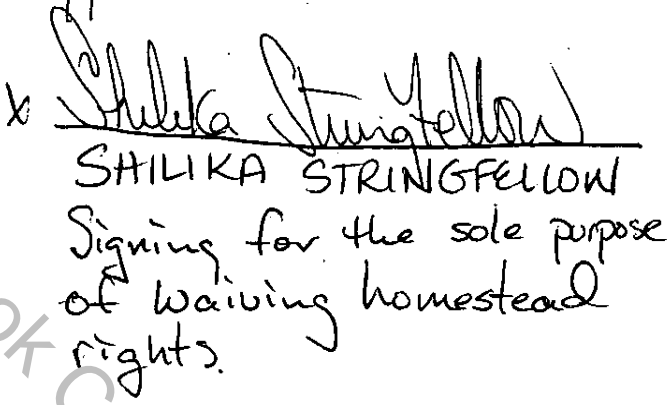 x Shilika Stringfellow
SHILIKA STRINGFELLOW
Signing for the sole purpose
of waiving homestead
rights.
ok C